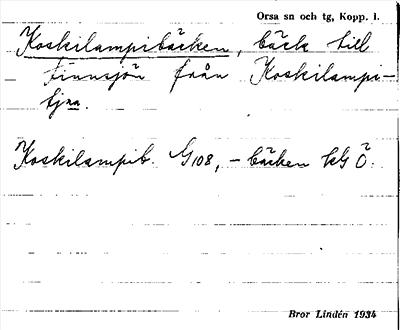 Orsa sn och tg, Kopp. l.
Koskilampibäcken, bäck till
Finnsjön från Koskilampi-
tjna.
Koskilampib. G108, - bäcken kG Ö.
Bror Lindén 1934